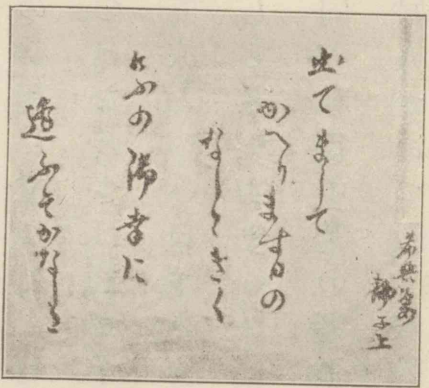 希典妻
静子上
出てまして
かへります日の
なしときく
けふの御幸に
逢ふそかなしき